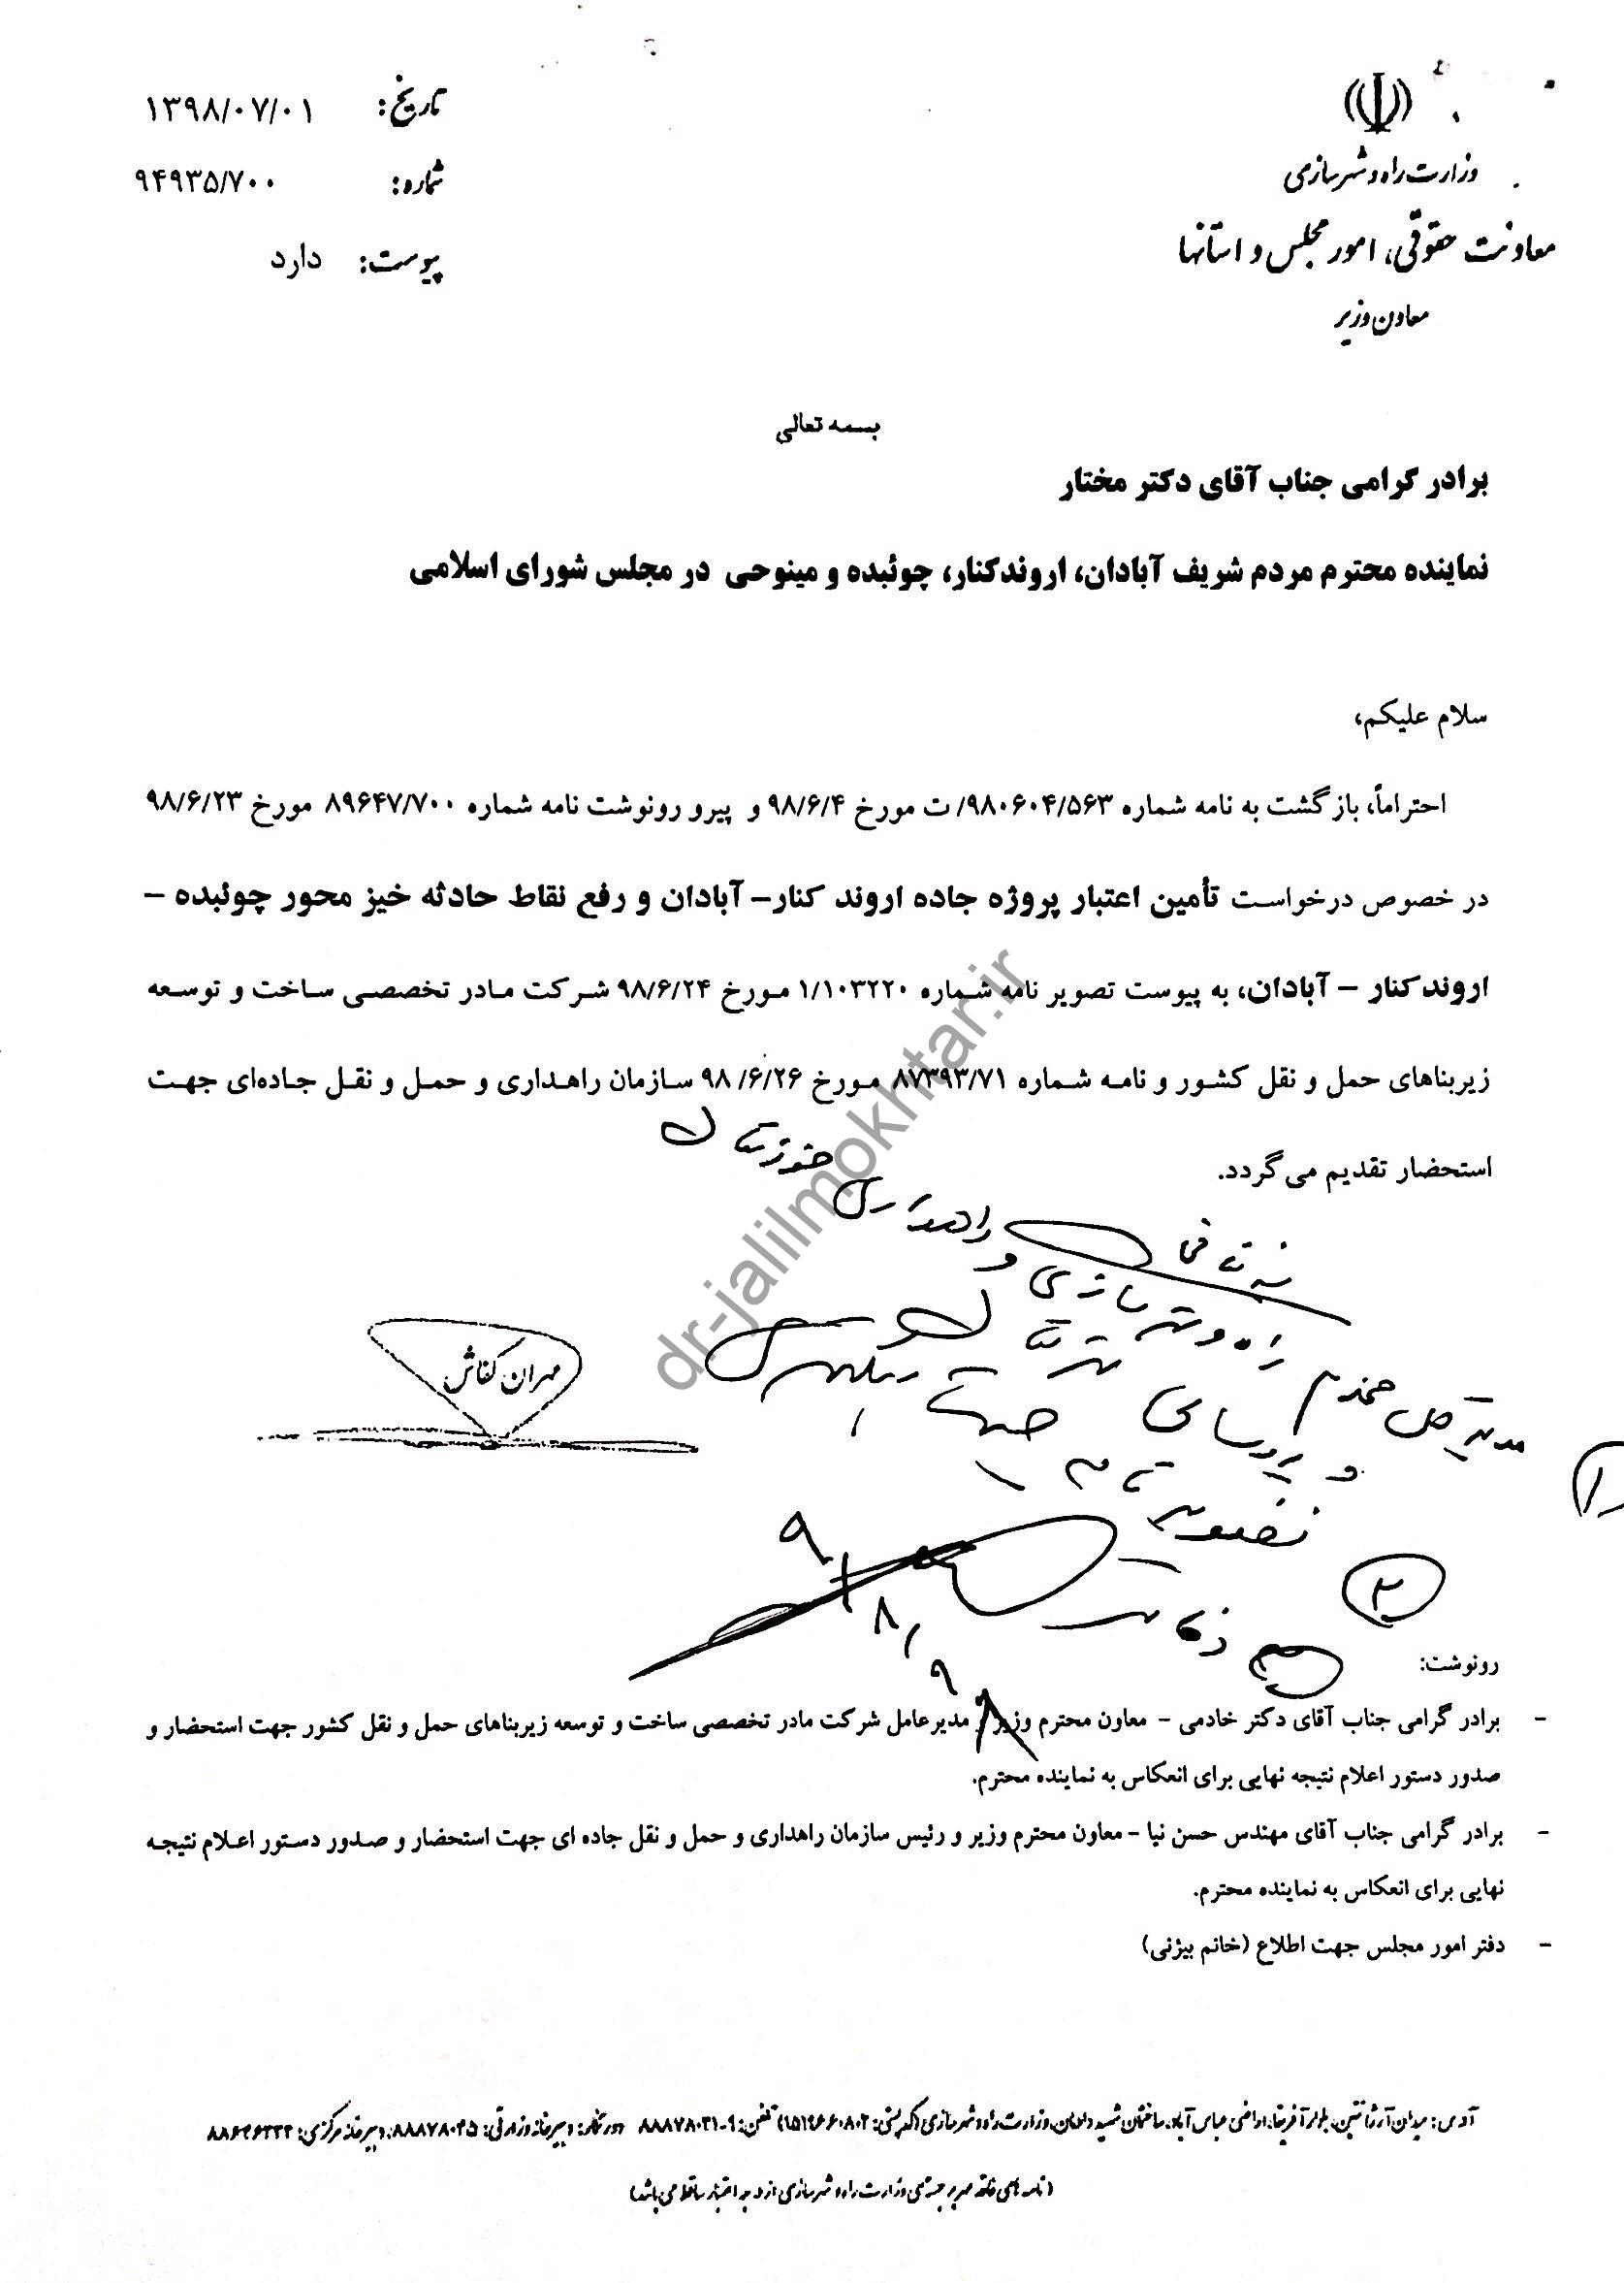 وزارت راه و شهرسازی
معاونت حقوقی، امور مجلس و استانها
معاون وزیر
تاریخ: ۱۳۹۸/۰۷/۰۱
شماره: ۹۴۹۳۵/۷۰۰
پیوست: دارد
بسمه تعالی
برادر گرامی جناب آقای دکتر مختار
نماینده محترم مردم شریف آبادان، اروندکنار، چوئبده و مینوحی در مجلس شورای اسلامی
سلام علیکم،
احتراماً، بازگشت به نامه شماره ۹۸۰۶۰۴/۵۶۳/ ت مورخ ۹۸/۶/۴ و پیرو رونوشت نامه شماره ۸۹۶۴۷/۷۰۰ مورخ ۹۸/۶/۲۳
در خصوص درخواست تأمین اعتبار پروژه جاده اروند کنار– آبادان و رفع نقاط حادثه خیز محور چوئبده –
اروندکنار – آبادان، به پیوست تصویر نامه شماره ۱/۱۰۳۲۲۰ مورخ ۹۸/۶/۲۴ شرکت مادر تخصصی ساخت و توسعه
زیربناهای حمل و نقل کشور و نامه شماره ۸۷۳۹۳/۷۱ مورخ ۹۸/۶/۲۶ سازمان راهداری و حمل و نقل جاده‌ای جهت
استحضار تقدیم می گردد.
راهداری خوزستان
راه و شهرسازی و
مدیر کل محترم
جهت
تصویر نامه
۹۸/۸/۹
۱
۲
مهران کفاش
dr-jalilmokhtar.ir
رونوشت:
- برادر گرامی جناب آقای دکتر خادمی - معاون محترم وزیر و مدیرعامل شرکت مادر تخصصی ساخت و توسعه زیربناهای حمل و نقل کشور جهت استحضار و
صدور دستور اعلام نتیجه نهایی برای انعکاس به نماینده محترم.
- برادر گرامی جناب آقای مهندس حسن نیا - معاون محترم وزیر و رئیس سازمان راهداری و حمل و نقل جاده ای جهت استحضار و صدور دستور اعلام نتیجه
نهایی برای انعکاس به نماینده محترم.
- دفتر امور مجلس جهت اطلاع (خانم بیژنی)
آدرس: میدان آرژانتین، بلوار آفریقا، اراضی عباس آباد، ساختمان شهید دادمان، وزارت راه و شهرسازی (کدپستی: ۱۵۱۹۶۶۰۸۰۲) تلفن: ۹-۸۸۸۷۸۰۳۱ دورنگار: دبیرخانه وزارتی: ۸۸۸۷۸۰۴۵، دبیرخانه مرکزی: ۸۸۶۴۶۳۳۴
(نامه های فاقد مهر برجسته ی وزارت راه و شهرسازی از درجه اعتبار ساقط می باشد)